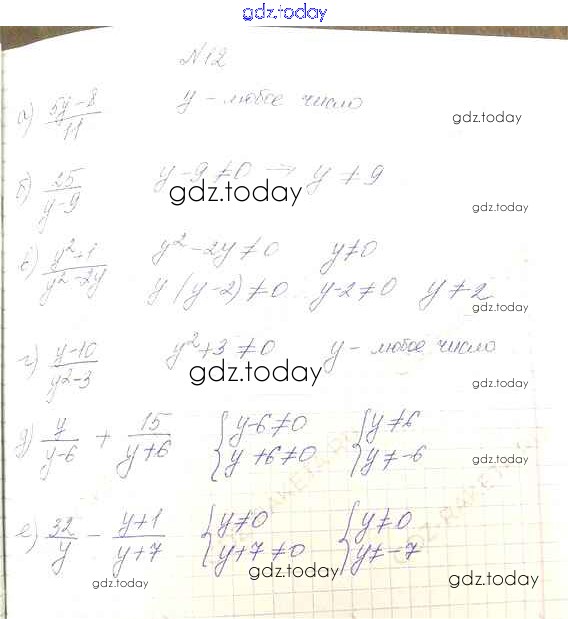 gdz.today
№12
а) (5y-8)/11 y - любое число
gdz.today
б) 25/(y-9) y-9≠0 → y≠9
gdz.today
gdz.today
в) (y²+1)/(y²-2y) y²-2y≠0 y≠0
y(y-2)≠0 y-2≠0 y≠2
gdz.today
г) (y-10)/(y²-3) y²+3≠0 y - любое число
gdz.today
gdz.today
д) y/(y-6) + 15/(y+6) { y-6≠0 { y≠6
y+6≠0 y≠-6
gdz.today
е) 32/y - (y+1)/(y+7) { y≠0 { y≠0
y+7≠0 y≠-7
gdz.today
gdz.today
gdz.today